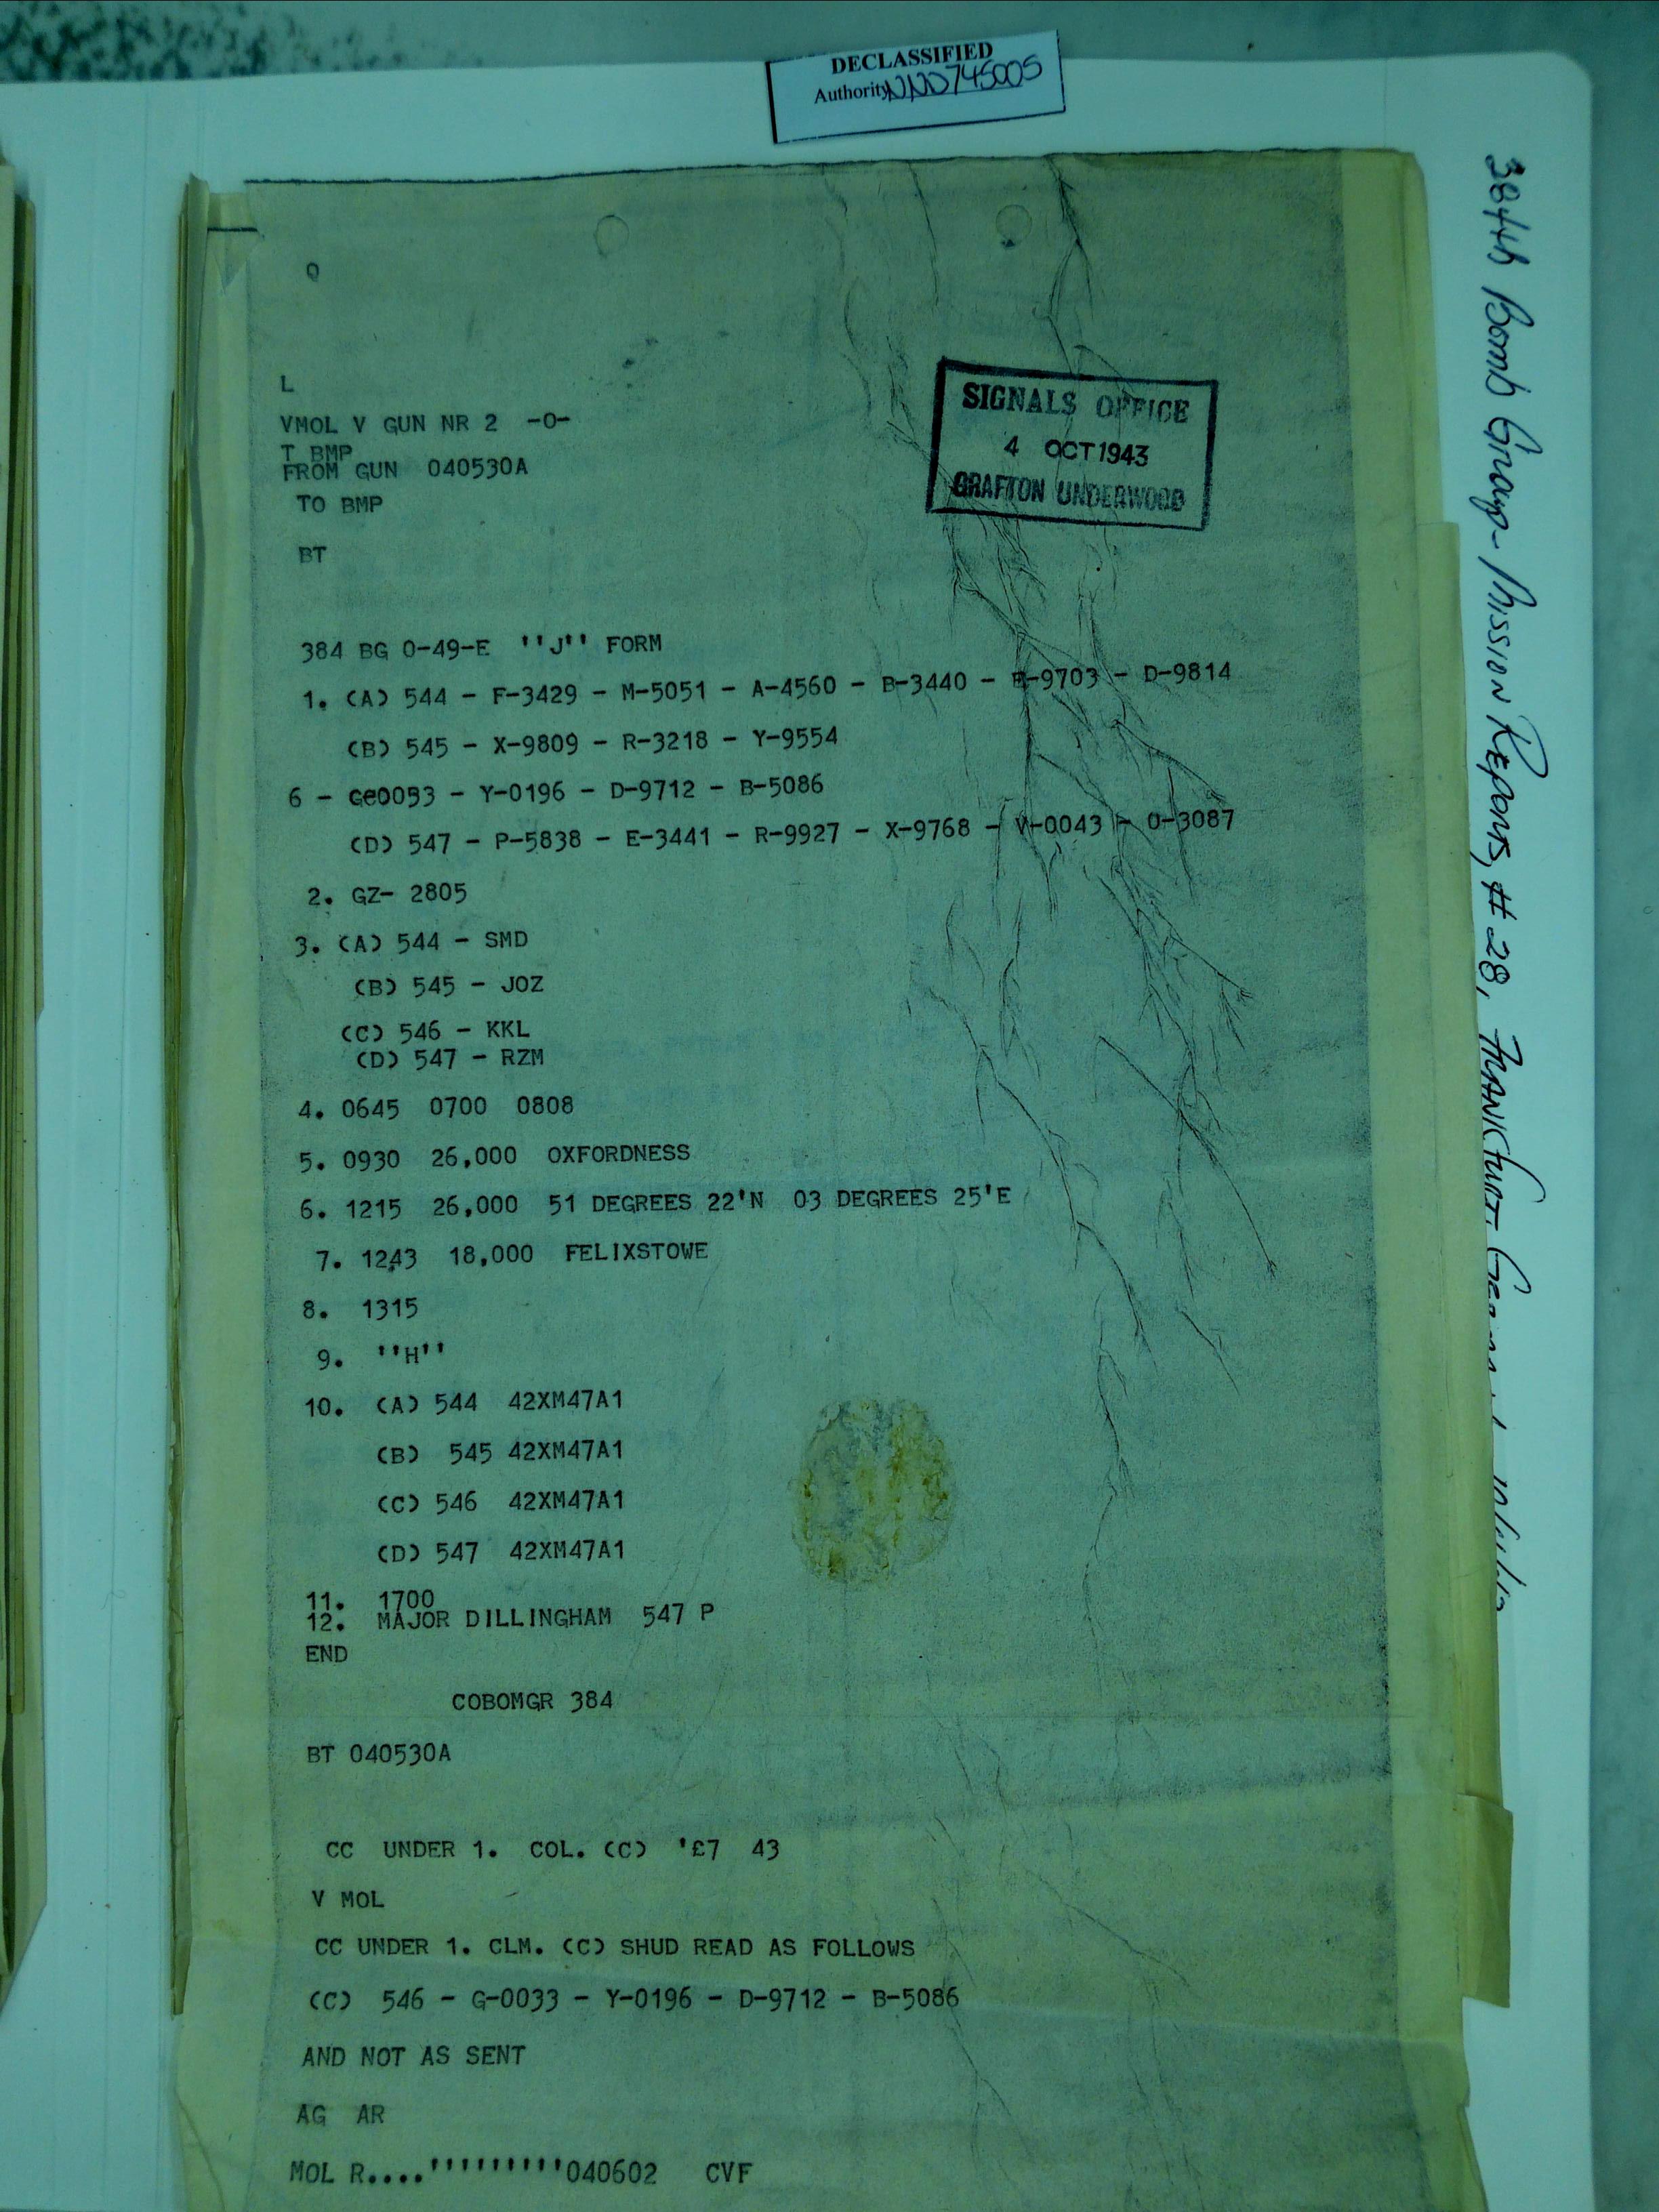 DECLASSIFIED
Authority NND 745005
384th Bomb Group - Mission Reports, # 28, FRANKFURT, 
SIGNALS OFFICE
4 OCT 1943
GRAFTON UNDERWOOD
O
L
VMOL V GUN NR 2 -O-
T BMP
FROM GUN 040530A
TO BMP
BT
384 BG O-49-E ''J'' FORM
1. (A) 544 - F-3429 - M-5051 - A-4560 - B-3440 - E-9703 - D-9814
(B) 545 - X-9809 - R-3218 - Y-9554
6 - GE0033 - Y-0196 - D-9712 - B-5086
(D) 547 - P-5838 - E-3441 - R-9927 - X-9768 - V-0043 - O-3087
2. GZ- 2805
3. (A) 544 - SMD
(B) 545 - JOZ
(C) 546 - KKL
(D) 547 - RZM
4. 0645 0700 0808
5. 0930 26,000 OXFORDNESS
6. 1215 26,000 51 DEGREES 22'N 03 DEGREES 25'E
7. 1243 18,000 FELIXSTOWE
8. 1315
9. ''H''
10. (A) 544 42XM47A1
(B) 545 42XM47A1
(C) 546 42XM47A1
(D) 547 42XM47A1
11. 1700
12. MAJOR DILLINGHAM 547 P
END
COBOMGR 384
BT 040530A
CC UNDER 1. COL. (C) '£7 43
V MOL
CC UNDER 1. CLM. (C) SHUD READ AS FOLLOWS
(C) 546 - G-0033 - Y-0196 - D-9712 - B-5086
AND NOT AS SENT
AG AR
MOL R....'''''''''040602 CVF